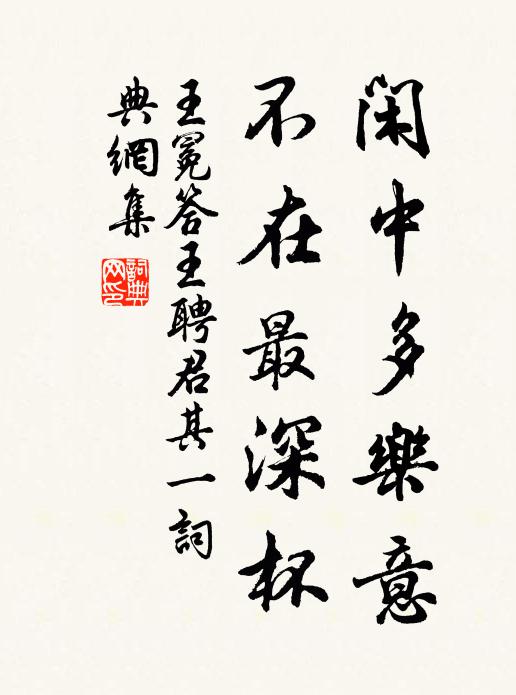 閑中多樂意
不在最深杯
王冕答王聘君其一詞
典網集
詞典
网印